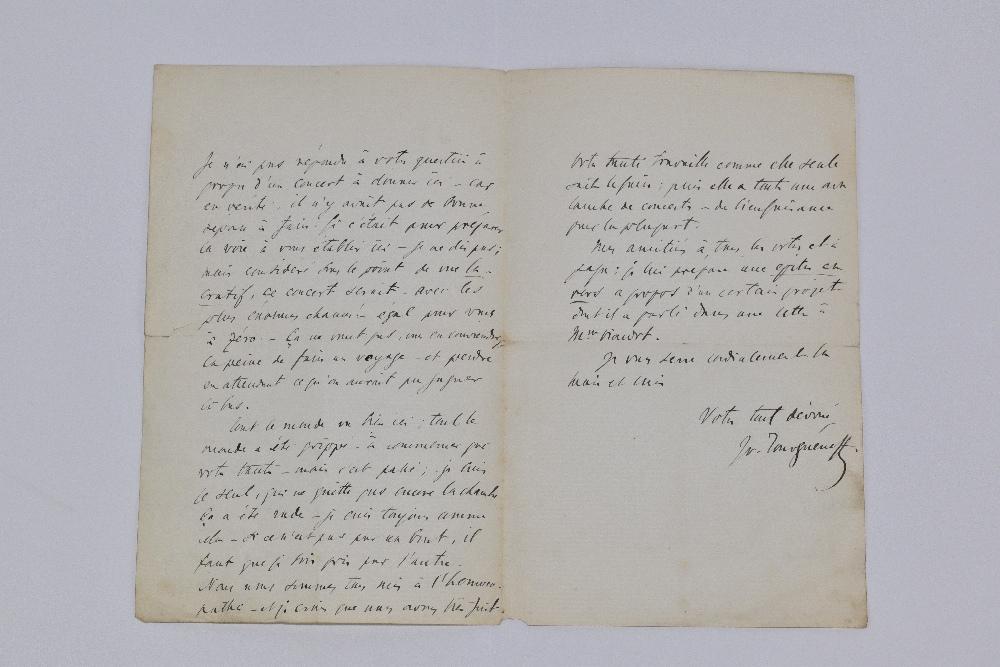 Je n'ai pas répondu à votre question à
propos d'un concert à donner ici – car
en vérité, il n'y avait pas de bonne
réponse à faire. Si c'était pour préparer
la voie à vous établir ici – je ne dis pas;
mais considéré sous le point de vue lu-
cratif, ce concert serait – avec les
plus énormes chances – égal pour vous
à zéro. – Ça ne vaut pas, vous en conviendrez,
la peine de faire un voyage – et perdre
en attendant ce qu'on aurait pu gagner
là bas.
Tout le monde va bien ici; tout le
monde a été grippé – à commencer par
votre tante – mais c'est passé; je suis
le seul, qui ne quitte pas encore la chambre
Ça a été rude – je suis toujours comme
cela – si ce n'est pas par un bout, il
faut que je sois pris par l'autre.
Nous nous sommes tous mis à l'homœo-
pathe – et je crois que nous avons bien fait.
Votre tante travaille comme elle seule
sait le faire; puis elle a toute une ava
lanche de concerts – de bienfaisance
pour la plupart.
Mes amitiés à tous les vôtres et à
je lui prépare une épître en
vers à propos d'un certain projet
dont il a parlé dans une lettre à
Mme Viardot.
Je vous serre cordialement la
main et suis
Votre tout dévoué
Iv. Tourguéneff